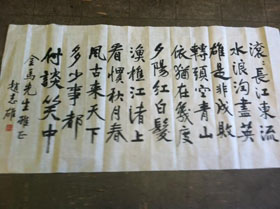 滚〻長江東流
水浪淘盡英
雄是非成敗
轉頭空青山
依猶在幾度
夕陽紅白髮
漁樵江渚上
看慣秋月春
風古來天下
多少事都
付談笑中
金馬先生雅正
趙志雄